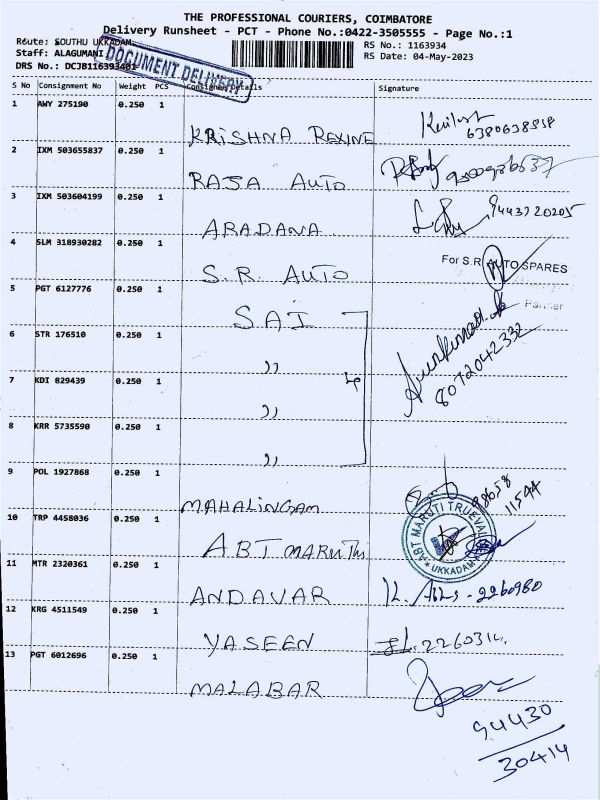 THE PROFESSIONAL COURIERS, COIMBATORE
Delivery Runsheet - PCT - Phone No.:0422-3505555 - Page No.:1
Route: SOUTHU UKKADAM
RS No.: 1163934
Staff: ALAGUMANI
RS Date: 04-May-2023
DRS No.: DCJB116393401
DOCUMENT DELIVERY
S No Consignment No Weight PCS Consignee Details Signature
1 AWY 275190 0.250 1
KRISHNA REXINE
6380638558
2 IXM 503655837 0.250 1
RAJA AUTO
3 IXM 503604199 0.250 1
ARADANA
9443720205
4 SLM 318930282 0.250 1
S.R. AUTO
For S.R. AUTO SPARES
Partner
5 PGT 6127776 0.250 1
SAI
Arunkumar
8072042332
6 STR 176510 0.250 1
"
7 KDI 829439 0.250 1
"
8 KRR 5735590 0.250 1
"
9 POL 1927868 0.250 1
MAHALINGAM
98658
11594
10 TRP 4458036 0.250 1
ABT MARUTHI
ABT MARUTI TRUEVALUE
UKKADAM
11 MTR 2320361 0.250 1
ANDAVAR
2260980
12 KRG 4511549 0.250 1
YASEEN
13 PGT 6012696 0.250 1
MALABAR
94430
30414